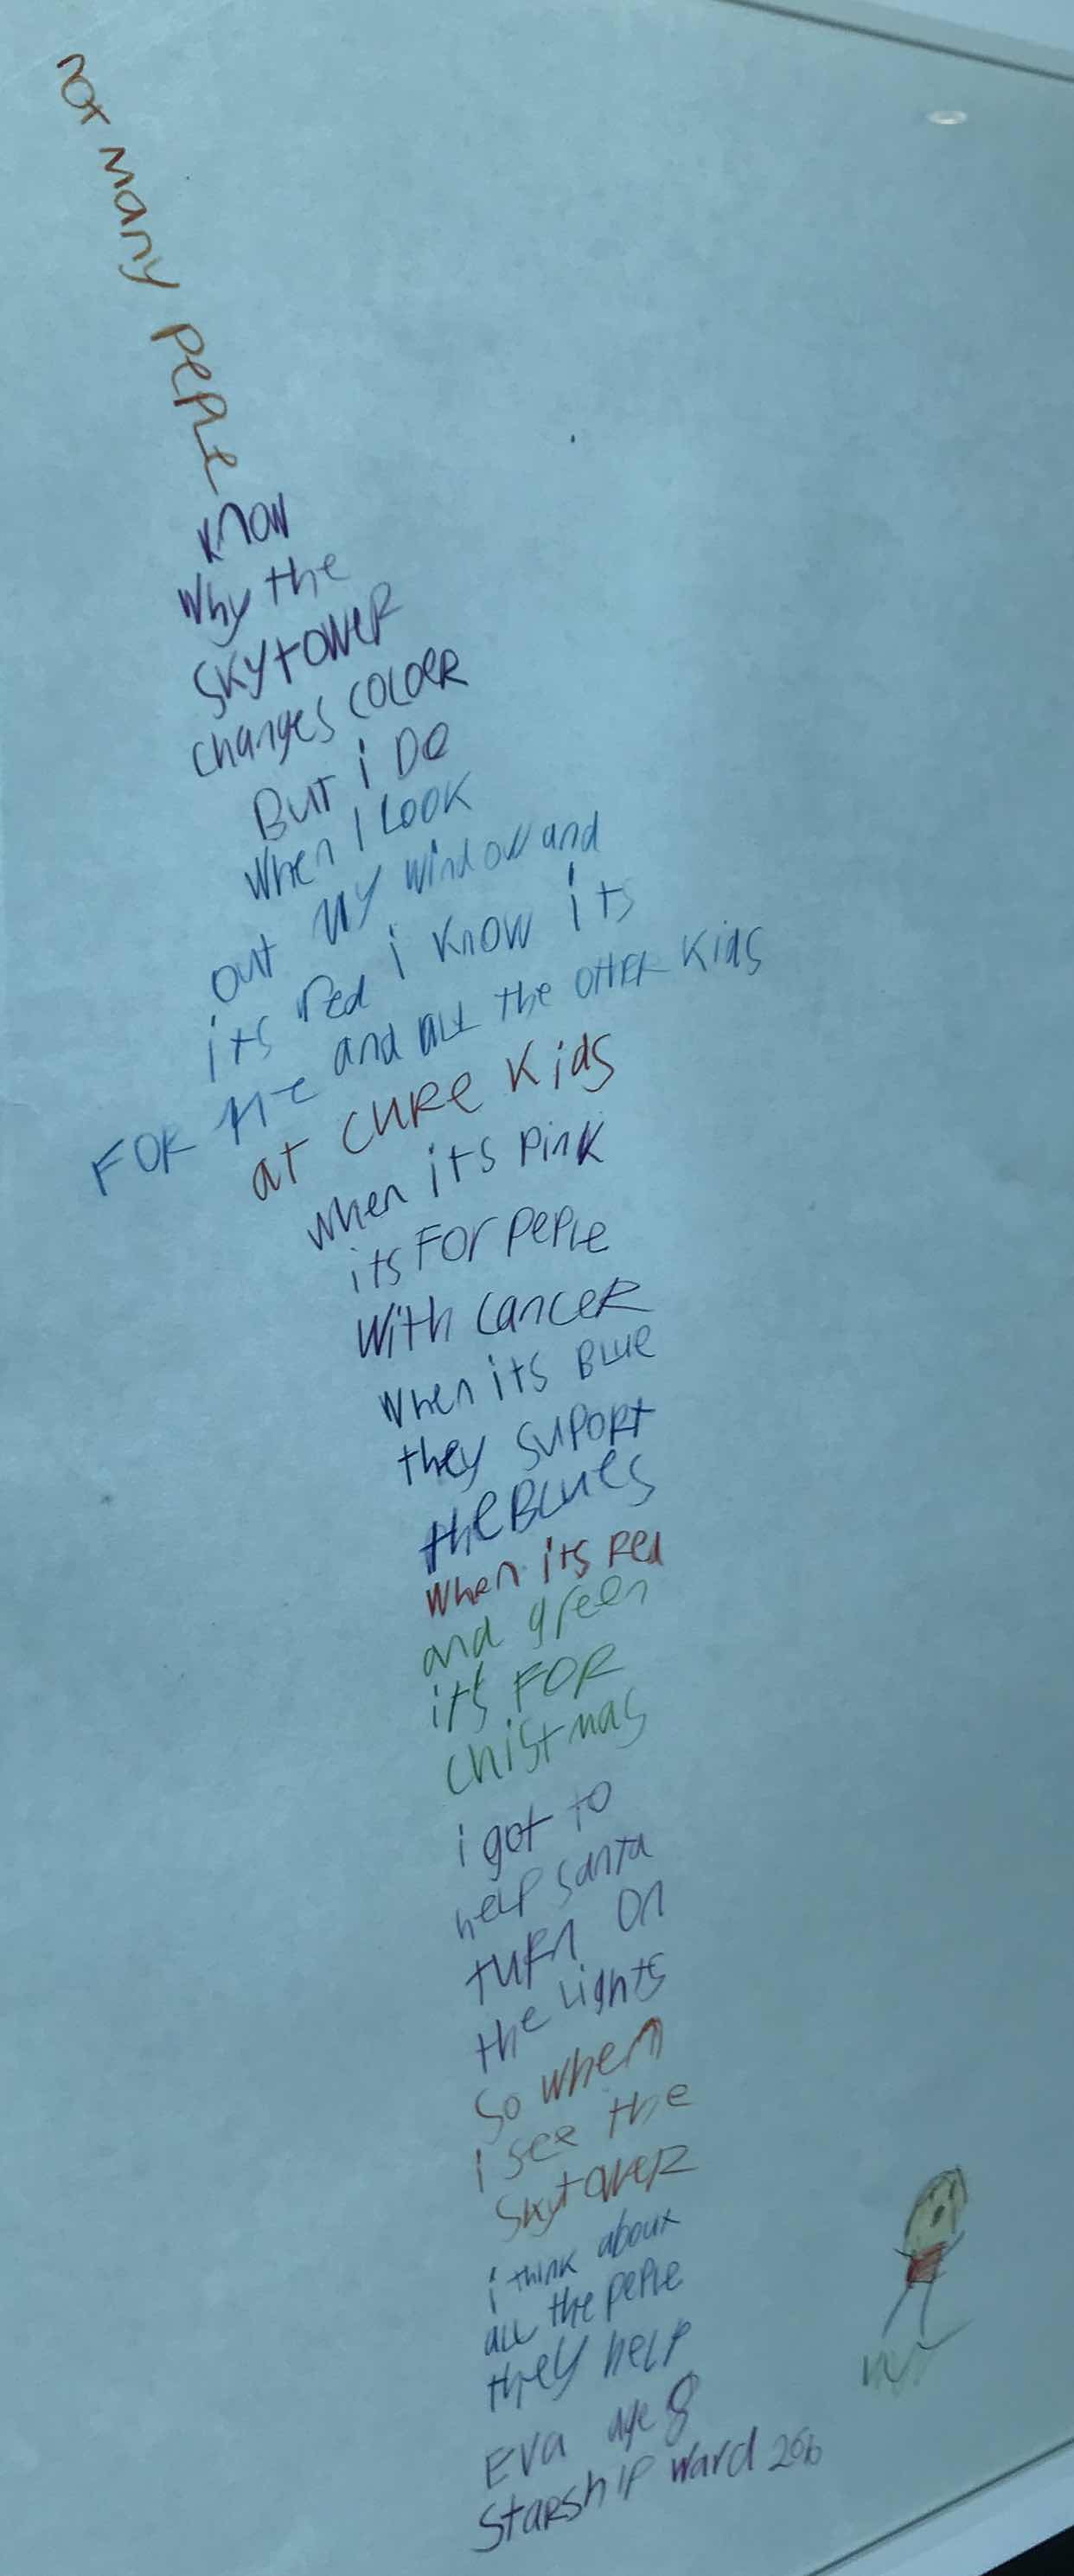 not many peple
know
Why the
SKytOWeR
changes COLOeR
BuT i DO
When I LOOK
out My Window and
its Red i KnOW its
FOR Me and aLL the OtHER Kids
at CuRe Kids
when its Pink
its FOr PePLe
With CanceR
When its BLue
they SuPORt
the BLues
When its Red
and green
its FOR
Chistmas
i got to
heLP Santa
tuRn On
the Lights
So when
i see the
SkytoweR
i think about
aLL the PePLe
they heLP
Eva age 8
StaRshIP Ward 26b